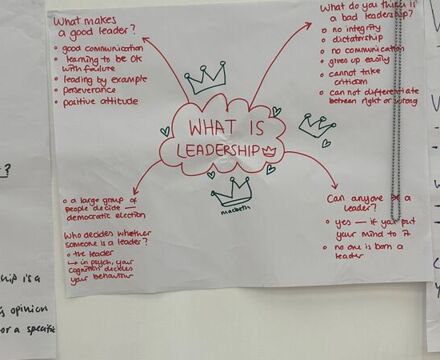 What makes
a good leader?
• good communication
• learning to be OK
with failure
• leading by example
• perseverance
• positive attitude
What do you think is
a bad leadership?
• no integrity
• dictatorship
• no communication
• gives up easily
• cannot take
criticism
• can not differentiate
between right or wrong
WHAT IS
LEADERSHIP
macbeth
• a large group of
people decide —
democratic election
Who decides whether
someone is a leader?
• the leader
↳ in psych, your
cognition decides
your behaviour
Can anyone be a
leader?
• yes — if you put
your mind to it
• no one is born a
leader
?
hip is a
opinion
or a specific